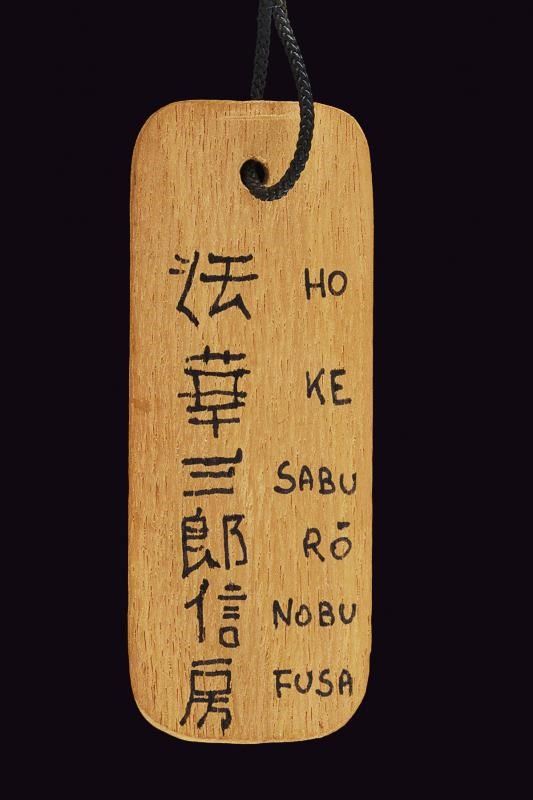 法華三郎信房
HO
KE
SABU
RŌ
NOBU
FUSA